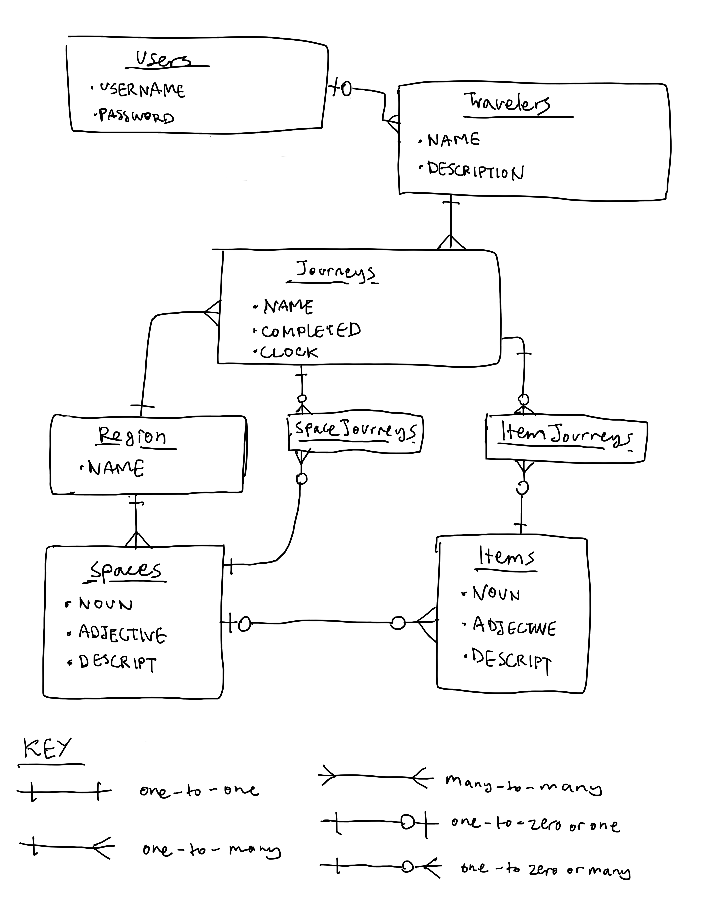 Users
• USERNAME
• PASSWORD
Travelers
• NAME
• DESCRIPTION
Journeys
• NAME
• COMPLETED
• CLOCK
Region
• NAME
SpaceJourneys
ItemJourneys
Spaces
• NOUN
• ADJECTIVE
• DESCRIPT
Items
• NOUN
• ADJECTIVE
• DESCRIPT
KEY
one-to-one
one-to-many
many-to-many
one-to-zero or one
one-to zero or many